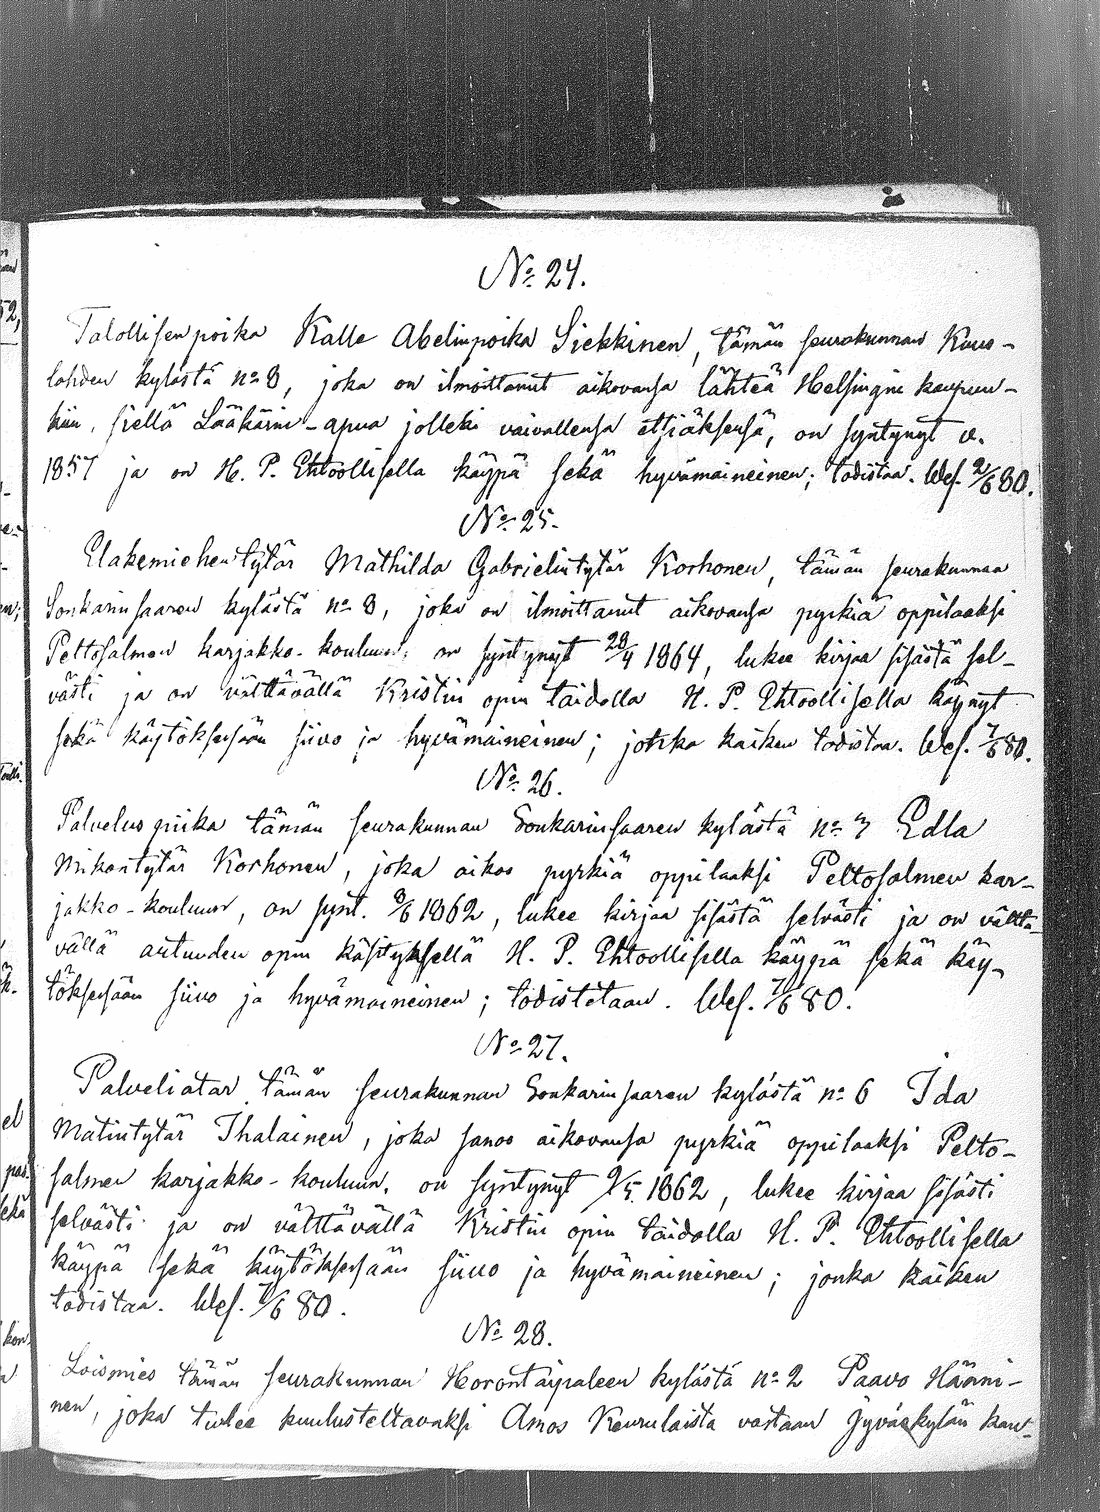 No 24.
Talollisenpoika Kalle Abelinpoika Siekkinen, tämän seurakunnan Kuus-
lahden kylästä no 8, joka on ilmoittanut aikovansa lähteä Helsingin kaupun-
kiin, siellä Lääkärin-apua jolleki vaivallensa etsiäksensä, on syntynyt v.
1857 ja on H. P. Ehtoollisella käypä sekä hyvämaineinen; todistaa. Wes. 2/6 80.
No 25.
Elakemiehentytär Mathilda Gabrielintytär Korhonen, tämän seurakunnan
Sonkarinsaaren kylästä no 8, joka on ilmoittanut aikovansa pyrkiä oppilaaksi
Peltosalmen karjakko-kouluun, on syntynyt 28/4 1864, lukee kirjaa sisästä sel-
västi ja on välttävällä Kristin opin taidolla H. P. Ehtoollisella käynyt
sekä käytöksessään siivo ja hyvämaineinen; jonka kaiken todistaa. Wes. 7/6 80.
No 26.
Palveluspiika tämän seurakunnan Sonkarinsaaren kylästä no 7 Edla
Mikontytär Korhonen, joka aikoo pyrkiä oppilaaksi Peltosalmen kar-
jakko-kouluun, on synt. 8/6 1862, lukee kirjaa sisästä selvästi ja on välttä-
vällä autuuden opin käsityksellä H. P. Ehtoollisella käypä sekä käy-
töksessään siivo ja hyvämaineinen; todistetaan. Wes. 7/6 80.
No 27.
Palveliatar tämän seurakunnan Sonkarinsaaren kylästä no 6 Ida
Matintytär Ihalainen, joka sanoo aikovansa pyrkiä oppilaaksi Pelto-
salmen karjakko-kouluun, on syntynyt 9/5 1862, lukee kirjaa sisästi
selvästi ja on välttävällä Kristin opin taidolla H. P. Ehtoollisella
käypä sekä käytöksessään siivo ja hyvämaineinen; jonka kaiken
todistaa. Wes. 7/6 80.
No 28.
Loismies tämän seurakunnan Horontaipaleen kylästä no 2 Paavo Hänni-
nen, joka tulee kuulusteltavaksi Amos Keurulaista vastaan Jyväskylän kau-